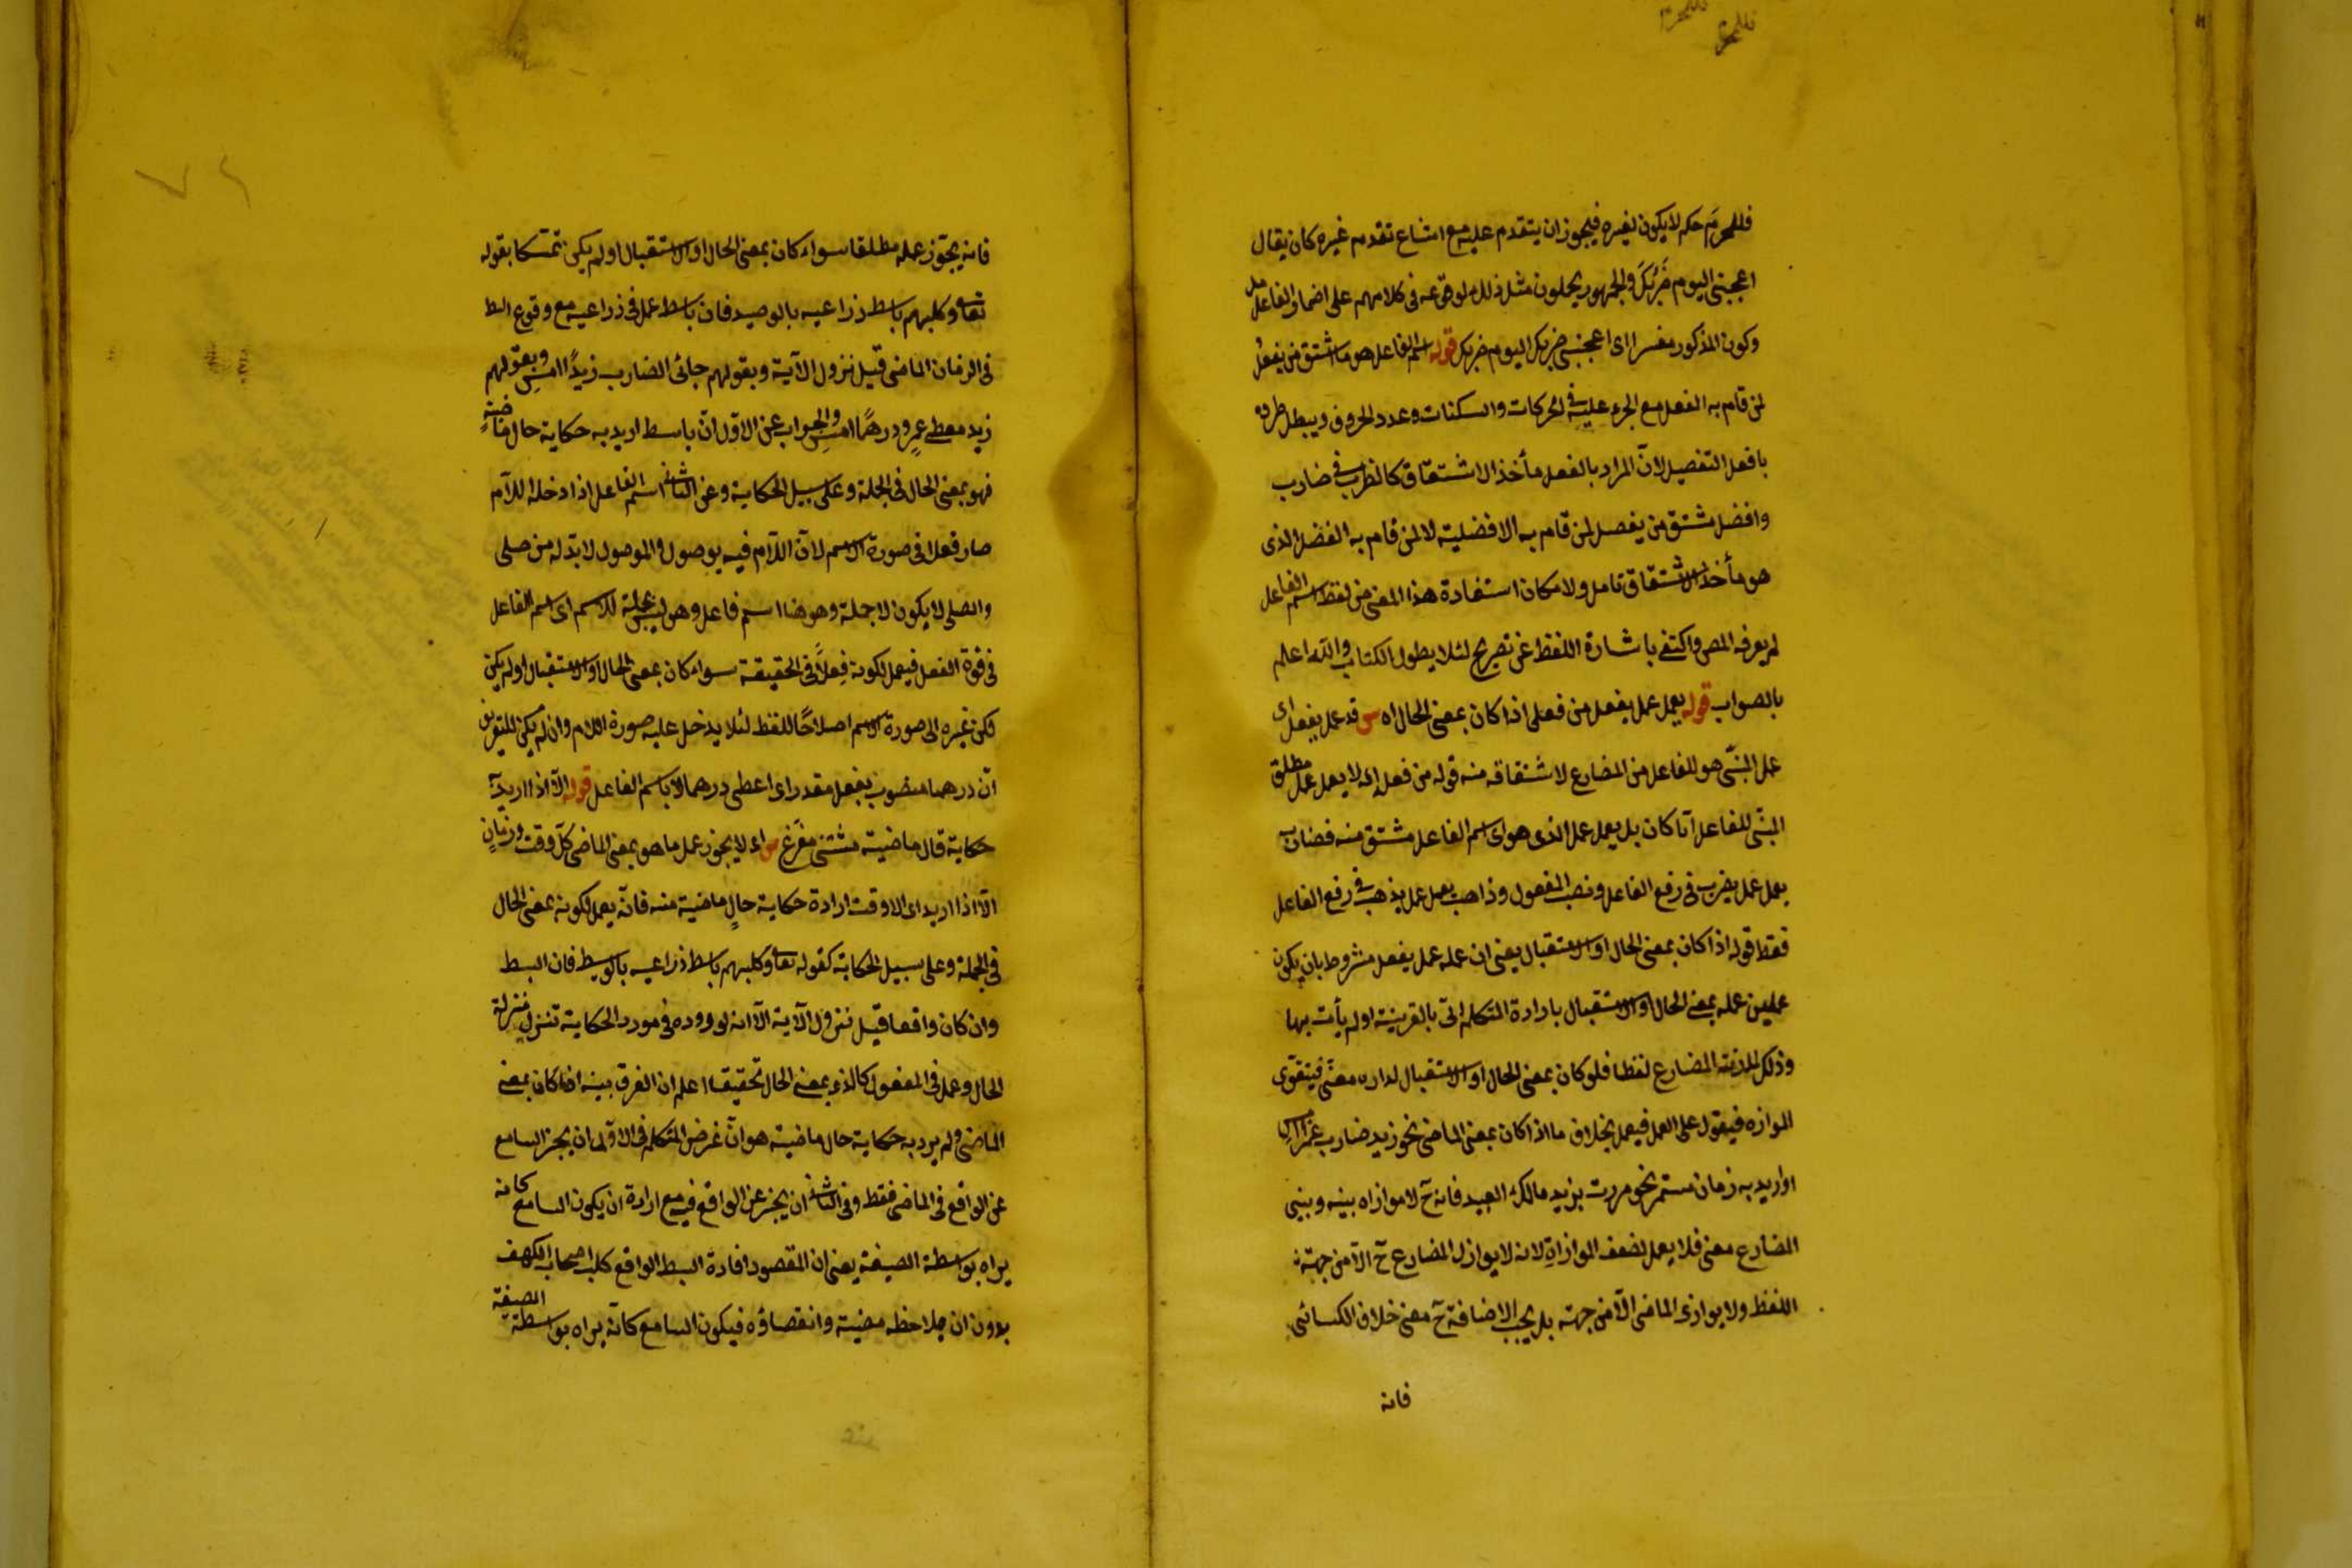 فللمحرم
فللمحرم
فللمحرم حكم لا يكون لغيره فيجوز ان يتقدم عليه مع امتناع تقدم غيره كان يقال
اعجبنى اليوم ضربك والجمهور يحملون مثل ذلك لو وقع فى كلامهم على اضمار الفاعل
وكون المذكور مفسرا اى اعجبنى ضربك اليوم ضربك قوله اسم الفاعل هو ما اشتق من يفعل
لمن قام به الفعل مع الجرى عليه فى الحركات والسكنات وعدد الحروف ويبطل طرده
بافعل التفضيل لان المراد بالفعل مأخذ الاشتقاق كالضرب فى ضارب
وافضل مشتق من يفضل لمن قام به الافضلية لا لمن قام به الفضل الذى
هو مأخذ الاشتقاق تامل ولامكان استفادة هذا المعنى من لفظ اسم الفاعل
لم يعرفه المص واكتفى باشارة اللفظ عن تصريح لئلا يطول الكتاب والله اعلم
بالصواب قوله يعمل عمل يفعل من فعلى اذا كان بمعنى الحال اه س قد عمل يفعل اى
عمل المبنى هو للفاعل من المضارع لاشتقاقه منه قوله من فعله اى لا يعمل عمل مطلق
المبنى للفاعل آيا كان بل يعمل عمل الذى هو اى اسم الفاعل مشتق منه فضارب
يعمل عمل يضرب فى رفع الفاعل ونصب المفعول وذاهب يعمل عمل يذهب فى رفع الفاعل
فقط قوله اذا كان بمعنى الحال او الاستقبال يعنى ان عمله عمل يفعل مشروط بان يكون
عمله بمعنى الحال او الاستقبال بارادة المتكلم اتى بالقرينة او لم يأت بها
وذلك المضارع لفظا فلو كان بمعنى الحال او الاستقبال معنى فيتقوى
الموازه فيقول على العمل فيعمل بخلاف ما اذا كان بمعنى الماضى نحو زيد ضارب عمرا امس
او اريد به زمان مستمر نحو مررت بزيد مالك العبيد فانه ح لا موازاه بينه وبينى
المضارع معنى فلا يعمل لضعف الموازاة لانه لا يوازل المضارع ح الا من جهته
اللفظ ولا يوازى الماضى الا من جهته بل يجب الاضافة ح معنى خلاف الكسائى
فانه
فانه يجوز عمله مطلقا سواء كان بمعنى الحال او الاستقبال او لم يكن تمسكا بقوله
تعا وكلبهم باسط ذراعيه بالوصيد فان باسط عمل فى ذراعيه مع وقوع البط
فى الزمان الماضى قبل نزول الآية وبقولهم جائى الضارب زيدا امس وبقولهم
زيد معطى عمرو درهما امس والجواب عن الاول ان باسط اريد به حكاية حال ماضية
فهو بمعنى الحال فى الجملة وعلى سبيل الحكاية وعن الثانى اسم الفاعل اذا دخله اللام
صار فعلا فى صورة الاسم لان اللام فيه موصول والموصول لا بد له من صلى
والصلى لا يكون الا جملة وهو هنا اسم فاعل وهو ليس بجملة للاسم اى اسم الفاعل
فى قوة الفعل فيعمل لكونه فعلا فى الحقيقة سواء كان بمعنى الحال او الاستقبال او لم يكن
لكن غيره الى صورة الاسم اصلاحا للفظ لئلا يدخل عليه صورة اللام وان لم يكن للتعريف
ان درهما منصوب بفعل مقدر اى اعطى درهما لا باسم الفاعل قوله الا اذا اريد
حكاية قال ماضية مثتنى مفرغ س اه لا يجوز عمل ما هو بمعنى الماضى كل وقت وزمان
الا اذا اريد اى الا وقت ارادة حكاية حال ماضية منه فانه يعمل لكونه بمعنى الحال
فى الجملة وعلى سبيل الحكاية كقوله تعا وكلبهم باسط ذراعيه بالوسيط فان البسط
وان كان واقعا قبل نزول الآية الا انه لوروده فى مورد الحكاية تنزل منزلة
الحال وعمل فى المفعول كالذى بمعنى الحال تحقيقا اعلم ان الفرق بينه اذا كان بمعنى
الماضى ولم يرد به حكاية حال ماضية هو ان غرض المتكلم فى الاول ان يخبر السامع
عن الواقع فى الماضى فقط وفى الثانى ان يخبر عن الواقع فيه مع ارادة ان يكون السامع كانه
يراه بواسطة الصيغة يعنى ان المقصود افادة البسط الواقع كلب اصحاب الكهف
بدون ان يلاحظه مضيته وانقضاؤه فيكون السامع كانه يراه بواسطة الصيغة